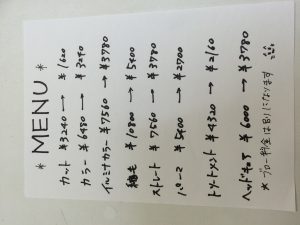 * MENU *
カット ¥3240 → ¥1620
カラー ¥6480 → ¥3240
イルミナカラー ¥7560 → ¥3780
縮毛 ¥10800 → ¥5400
ストレート ¥7560 → ¥3780
パーマ ¥5400 → ¥2700
トリートメント ¥4320 → ¥2160
ヘッドキュア ¥6000 → ¥3780
*ブロー料金は別になります